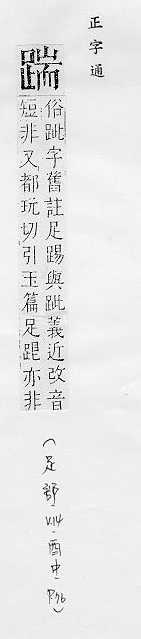 正字通
踹
俗跐字舊註足踢與跐義近改音
短非又都玩切引玉篇足踶亦非
(足部-V.14-酉中-P.76)